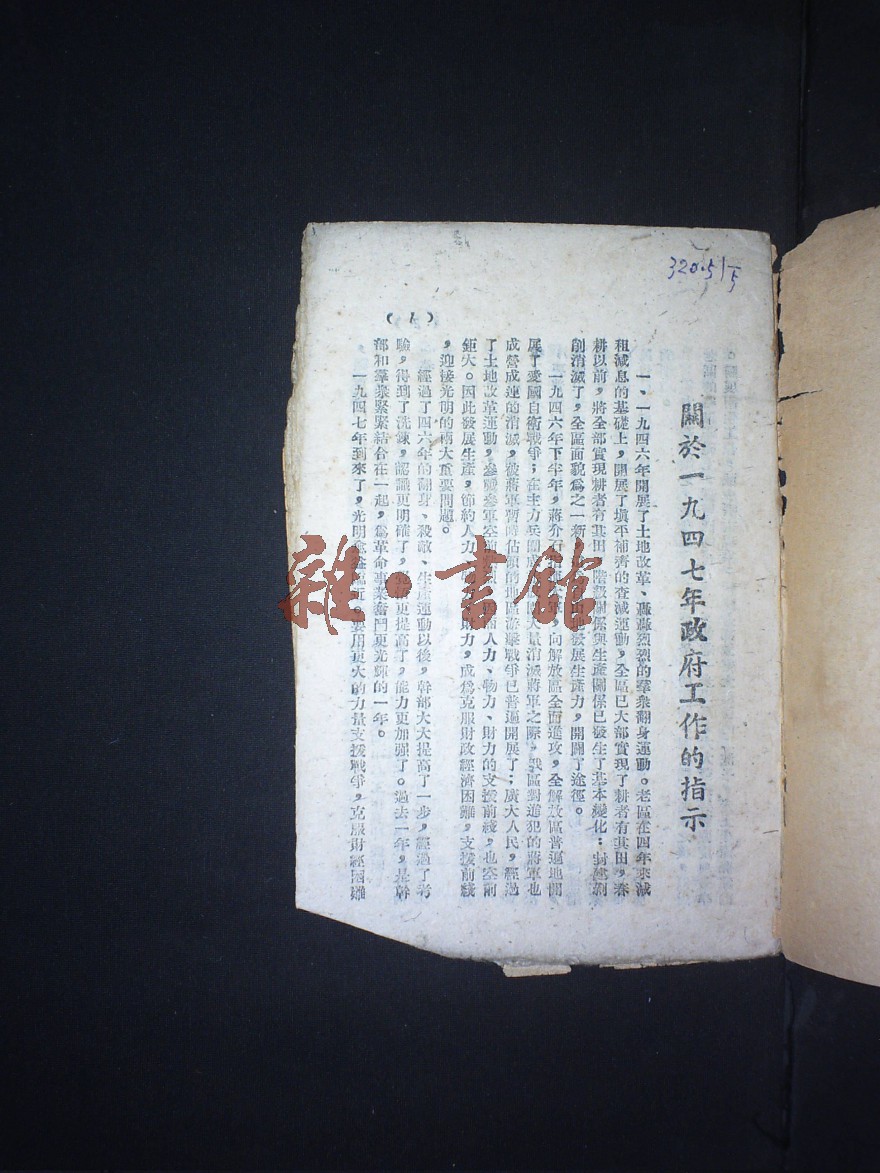 320.5
關於一九四七年政府工作的指示
一、一九四六年開展了土地改革、轟轟烈烈的羣衆翻身運動。老區在四年來減
租減息的基礎上，開展了填平補齊的查減運動，全區已大部實現了耕者有其田，春
耕以前，將全部實現耕者有其田，階級關係與生產關係已發生了基本變化：封建剝
削消滅了，全區面貌爲之一新，發展生產力，開闢了途徑。
一九四六年下半年，蔣介石軍，向解放區全面進攻，全解放區普遍地開
展了愛國自衛戰爭；在主力兵團大量消滅蔣軍之際，我區對進犯的蔣軍也
成營成連的消滅，被蔣軍暫時佔領的地區游擊戰爭已普遍開展了；廣大人民，經過
了土地改革運動，參戰參軍空前人力、物力、財力的支援前綫，也空前
鉅大。因此發展生產，節約人力、財力，成爲克服財政經濟困難，支援前綫
，迎接光明的兩大重要問題。
經過了四六年的翻身、殺敵、生產運動以後，幹部大大提高了一步，經過了考
驗，得到了洗鍊，認識更明確了，更提高了，能力更加强了。過去一年，是幹
部和羣衆緊緊結合在一起，爲革命事業奮鬥更光輝的一年。
一九四七年到來了，光明要用更大的力量支援戰爭，克服財經困難
（1）
雜·書館